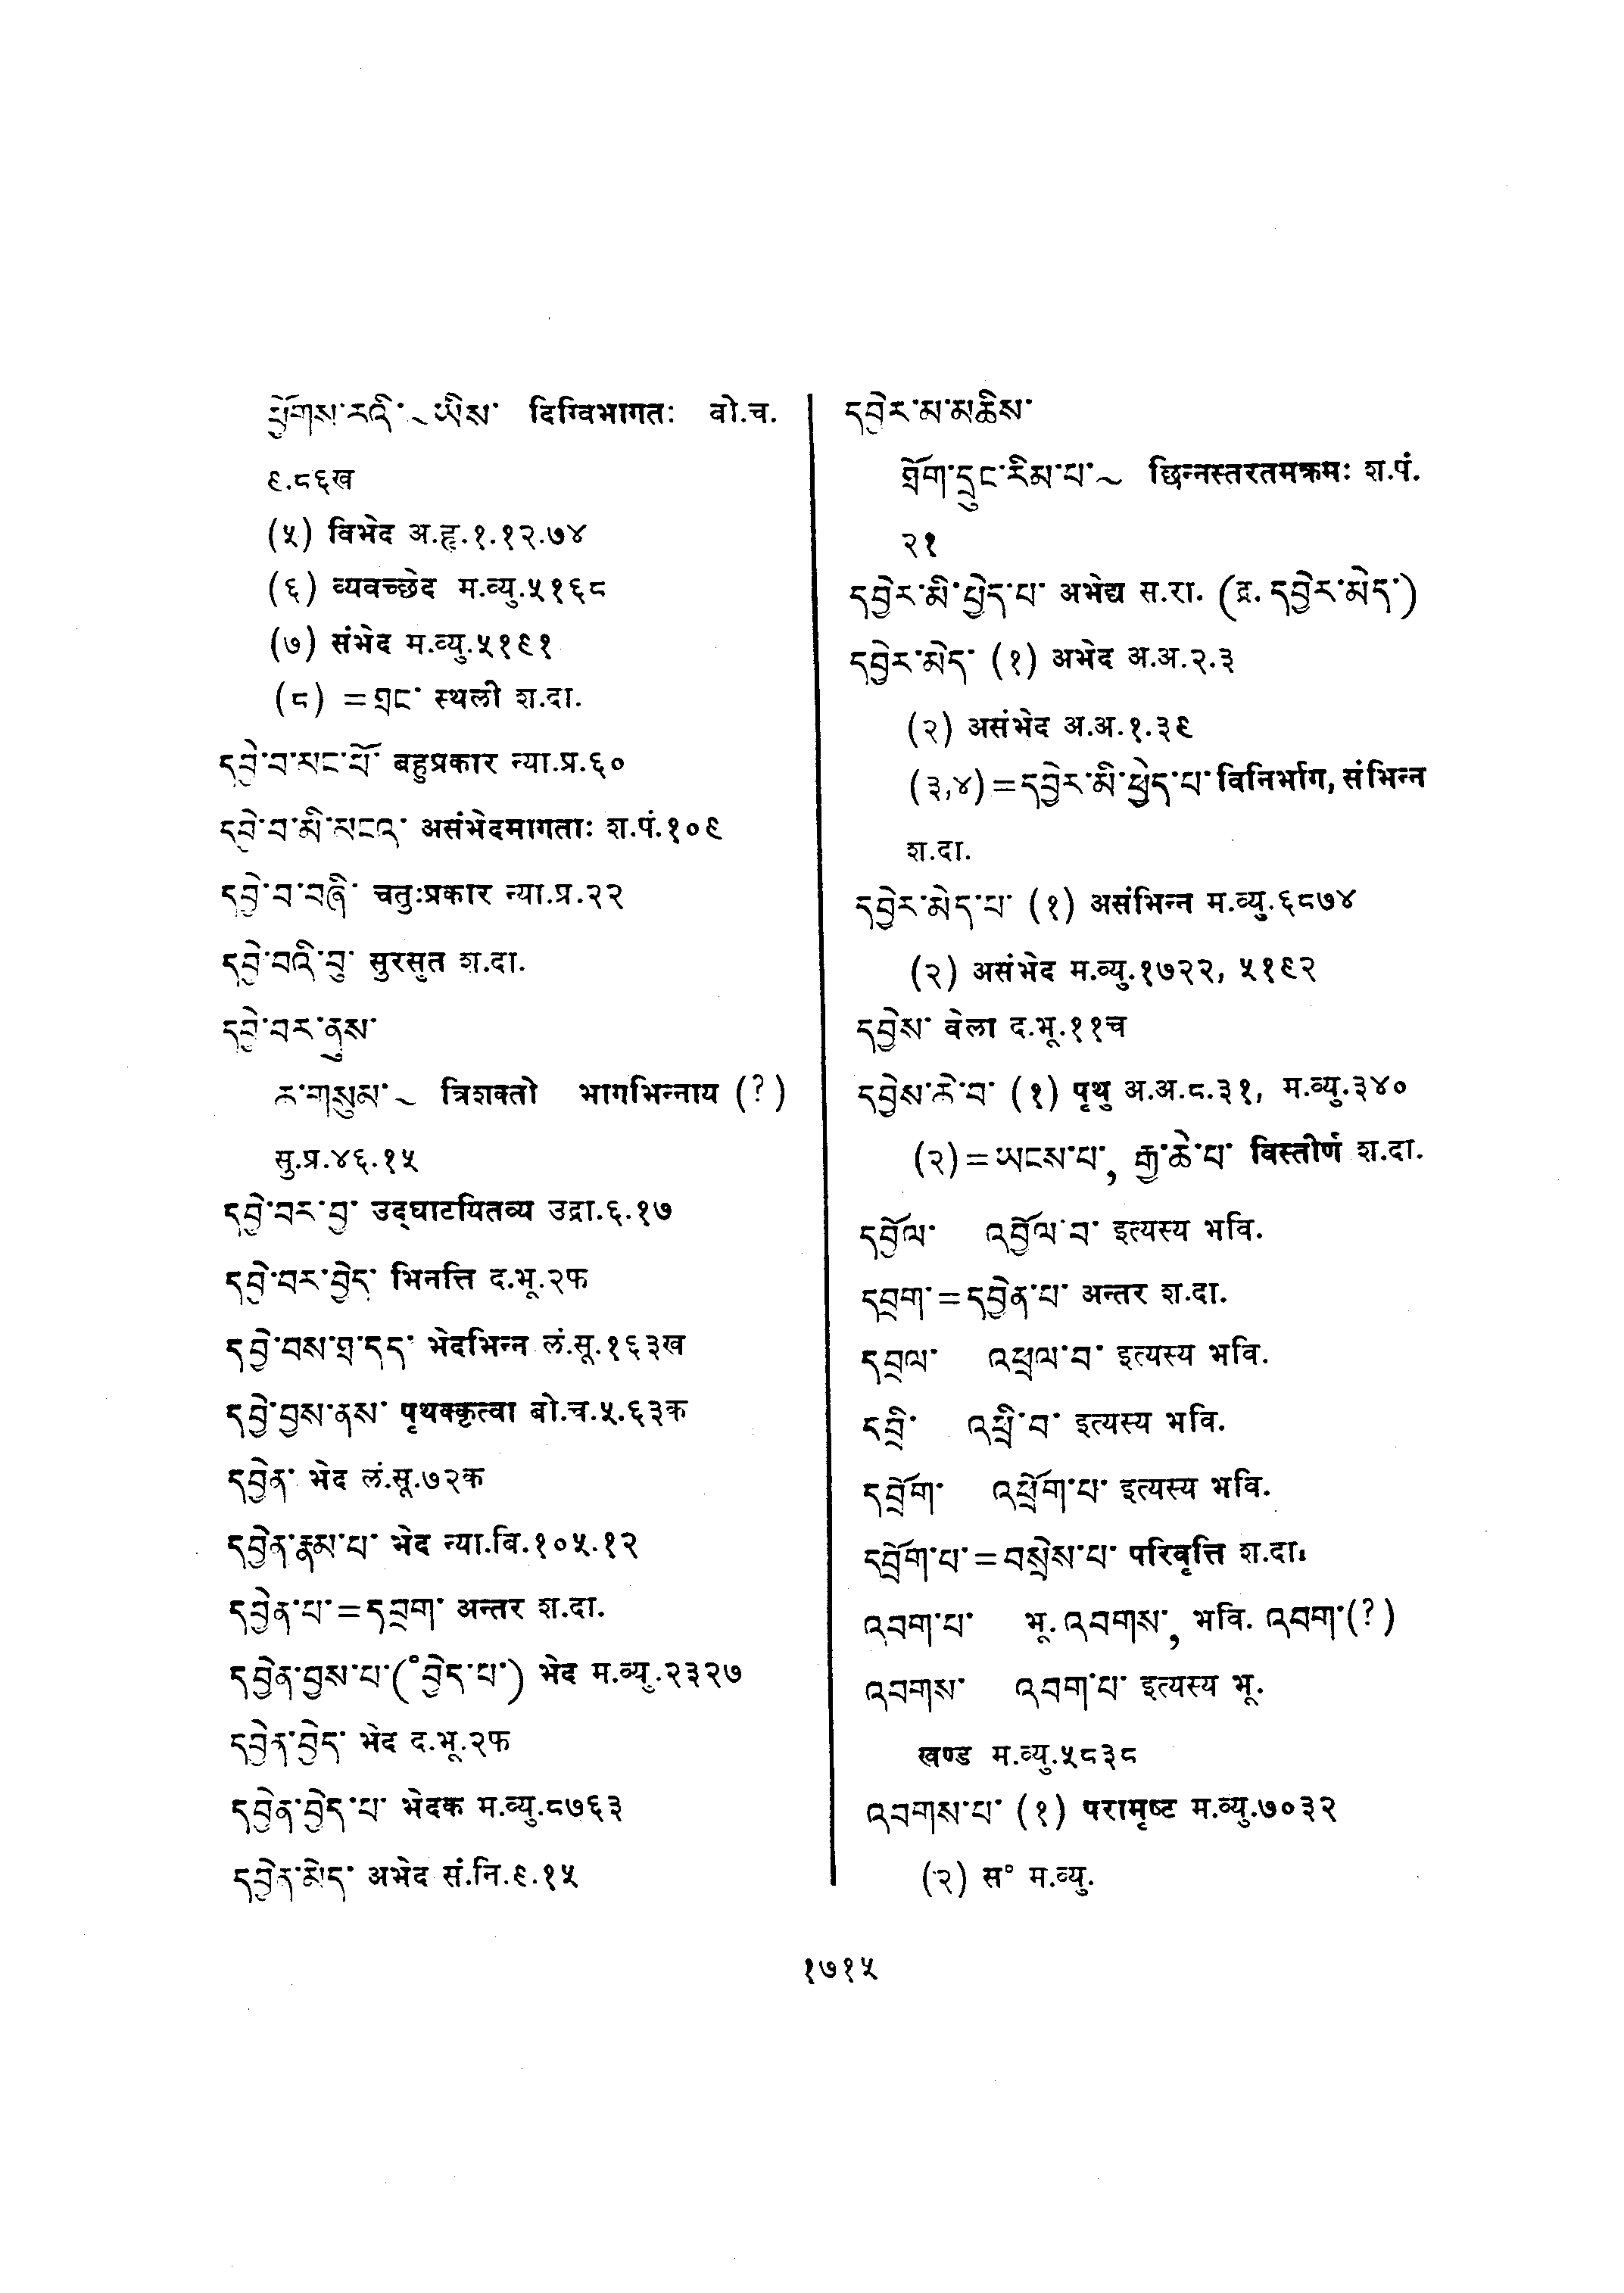 ཕྱོགས་རའི་ ~ ཡིས་ दिग्विभागतः बो.च.
९.८६ख
(५) विभेद अ.हृ.१.१२.७४
(६) व्यवच्छेद म.व्यु.५१६८
(७) संभेद म.व्यु.५१९१
(८) =ཐང་ स्थली श.दा.
དབྱེ་བ་མང་པོ་ बहुप्रकार न्या.प्र.६०
དབྱེ་བ་མི་མངའ་ असंभेदमागताः श.पं.१०९
དབྱེ་བ་བཞི་ चतुःप्रकार न्या.प्र.२२
དབྱེ་བའི་བུ་ सुरसुत श.दा.
དབྱེ་བར་ནུས་
ཆ་གསུམ་ ~ त्रिशक्तो भागभिन्नाय (?)
सु.प्र.४६.१५
དབྱེ་བར་བྱ་ उद्घाटयितव्य उद्रा.६.१७
དབྱེ་བར་བྱེད་ भिनत्ति द.भू.२फ
དབྱེ་བས་ཐ་དད་ भेदभिन्न लं.सू.१६३ख
དབྱེ་བྱས་ནས་ पृथक्कृत्वा बो.च.५.६३क
དབྱེན་ भेद लं.सू.७२क
དབྱེན་རྣམ་པ་ भेद न्या.बि.१०५.१२
དབྱེན་པ་=དབྲག་ अन्तर श.दा.
དབྱེན་བྱས་པ་(°བྱེད་པ་) भेद म.व्यु.२३२७
དབྱེན་བྱེད་ भेद द.भू.२फ
དབྱེན་བྱེད་པ་ भेदक म.व्यु.८७६३
དབྱེན་མེད་ अभेद सं.नि.९.१५
དབྱེར་མ་མཆིས་
ཐོག་དྲུང་རིམ་པ་ ~ छिन्नस्तरतमक्रमः श.पं.
२१
དབྱེར་མི་ཕྱེད་པ་ अभेद्य स.रा. (द्र. དབྱེར་མེད་)
དབྱེར་མེད་ (१) अभेद अ.अ.२.३
(२) असंभेद अ.अ.१.३९
(३,४)=དབྱེར་མི་ཕྱེད་པ་ विनिर्भाग, संभिन्न
श.दा.
དབྱེར་མེད་པ་ (१) असंभिन्न म.व्यु.६८७४
(२) असंभेद म.व्यु.१७२२, ५१९२
དབྱེས་ वेला द.भू.११च
དབྱེས་ཆེ་བ་ (१) पृथु अ.अ.८.३१, म.व्यु.३४०
(२)=ཡངས་པ་, རྒྱ་ཆེ་པ་ विस्तीर्ण श.दा.
དབྱོལ་ འབྱོལ་བ་ इत्यस्य भवि.
དབྲག་=དབྱེན་པ་ अन्तर श.दा.
དབྲལ་ འཕྲལ་བ་ इत्यस्य भवि.
དབྲི་ འཕྲི་བ་ इत्यस्य भवि.
དབྲོག་ འཕྲོག་པ་ इत्यस्य भवि.
དབྲོག་པ་=བསྲེས་པ་ परिवृत्ति श.दा.
འབག་པ་ भू. འབགས་, भवि. འབག་(?)
འབགས་ འབག་པ་ इत्यस्य भू.
खण्ड म.व्यु.५८३८
འབགས་པ་ (१) परामृष्ट म.व्यु.७०३२
(२) स° म.व्यु.
१७१५